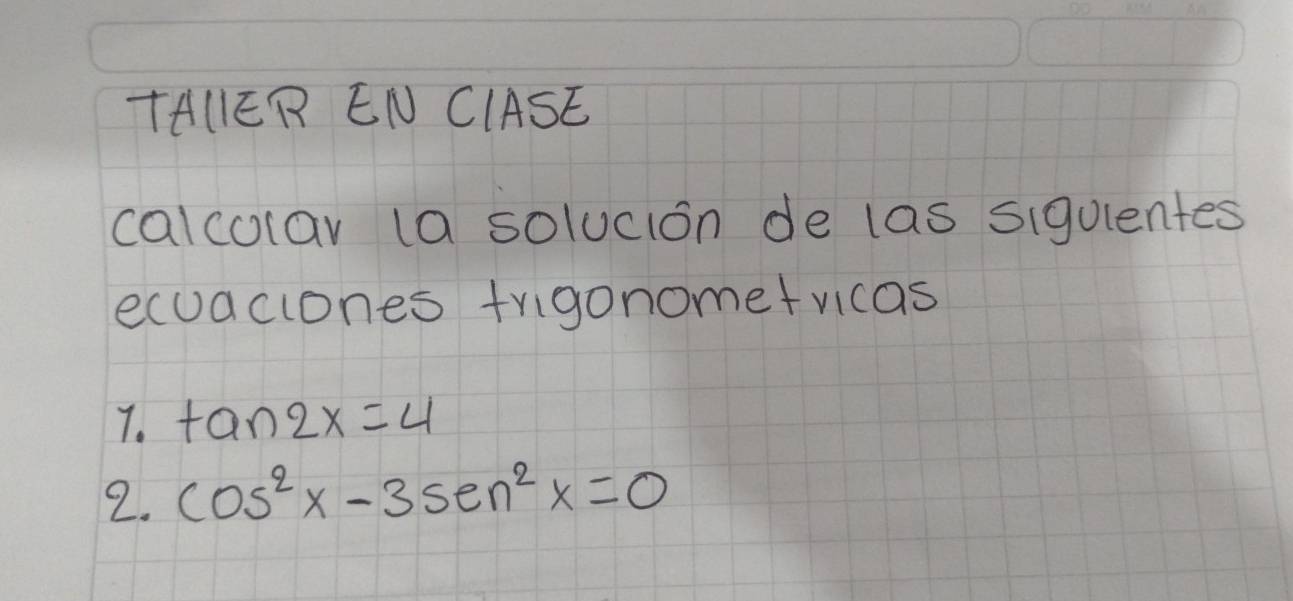 TALLER EN CLASE
calcular la solución de las siguientes
ecuaciones trigonometricas
1. tan2x=4
2. cos²x-3sen²x=0